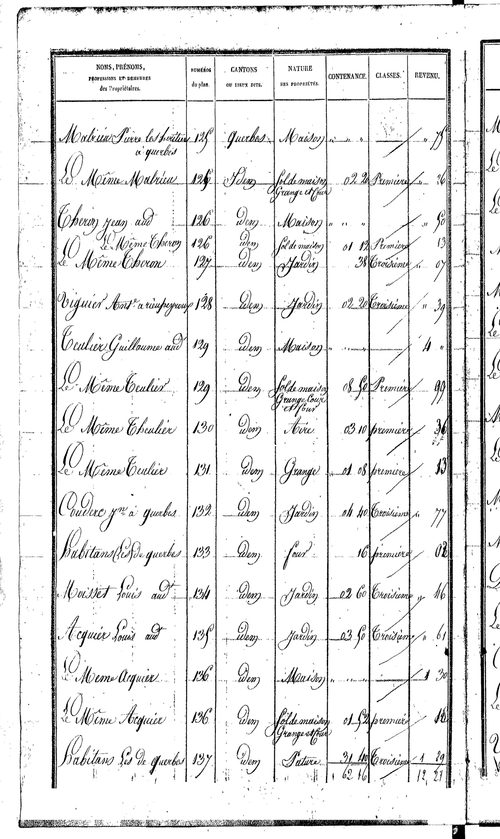 NOMS, PRÉNOMS, PROFESSIONS ET DEMEURES des Propriétaires. NUMÉROS du plan. CANTONS OU LIEUX DITS. NATURE DES PROPRIÉTÉS. CONTENANCE. CLASSES. REVENU.
Mabrieu Pierre les héritiers à querbes 125 querbes Maison " " " " 75
Le Même Mabrieu 125 Idem Sol de maison Grange et Cour 02 20 Première " 26
Theron jean aud 126 idem Maison " " " " 50
Le Même Theron 126 idem Sol de maison 01 12 Première 13
Le Même Theron 127 idem Jardin 38 Troisième " 07
Viguier Ant.e a 128 idem Jardin 02 20 Troisième " 39
Teulier Guillaume aud 129 idem Maison " " 4 "
Le Même Teulier 129 idem Sol de maison Grange Cour et Cour 08 50 Première 99
Le Même Theulier 130 idem Aire 03 10 première 36
Le Même Teulier 131 idem Grange 01 08 première 13
Couderc jn à querbes 132 idem Jardin 04 40 Troisième " 77
habitans (les) de querbes 133 idem four 16 première 02
Moisset Louis aud 134 idem Jardin 02 60 Troisième " 46
Acquier Louis aud 135 idem Jardin 03 50 Troisième " 61
Le Meme Acquier 136 idem Maison " " " 1 30
Le Même Acquier 136 idem Sol de maison Grange et Cour 01 52 première 18
habitans Les de querbes 137 idem Pature 31 40 Troisième 1 29
62 16 12 21